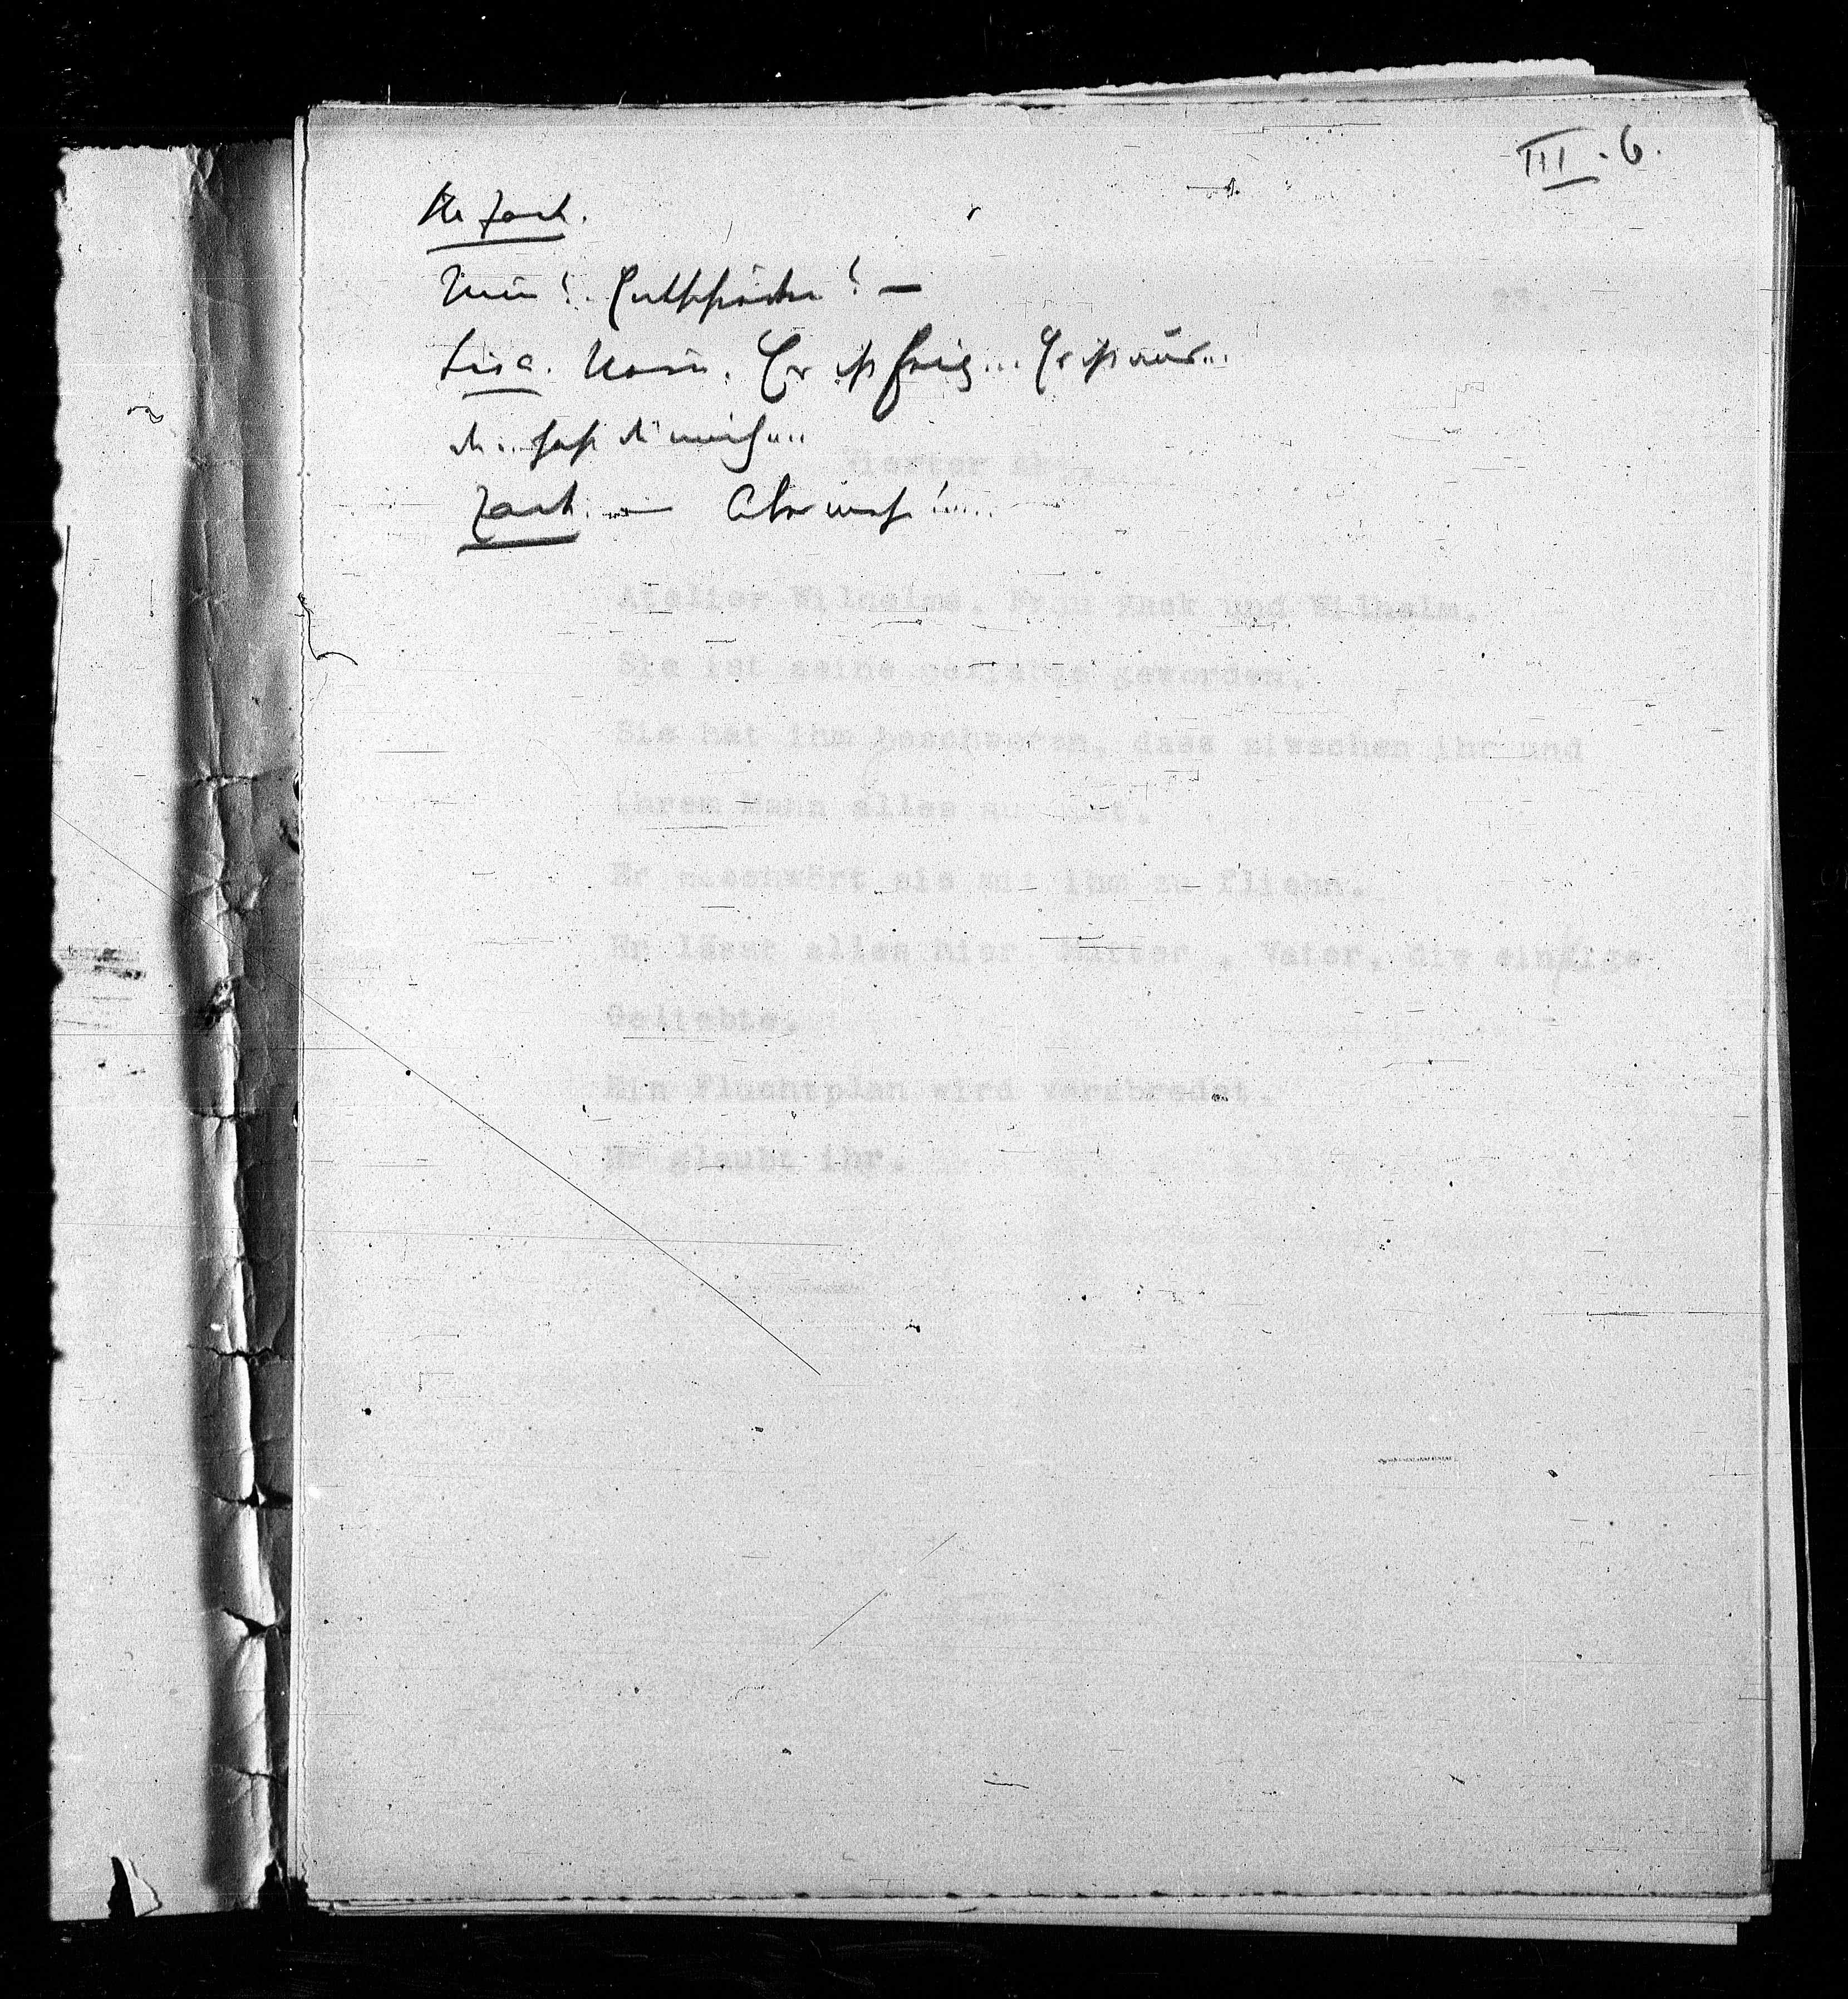 III. 6.
Nein!
Lisa. Nein. Er ist
du.. hast du mich...
Zack. —
23.
Vierter Akt.
Atelier Wilhelms. Frau Zack und Wilhelm.
Sie ist seine geliebte geworden.
Sie hat ihm beschworen, dass ziwschen ihr und
ihrem Mann alles aus ist.
Er beschwört sie mit ihm zu fliehn.
Er lässt alles hier Mutter, Vater, die einzige
Geliebte.
Ein Fluchtplan wird verabredet.
Er glaubt ihr.